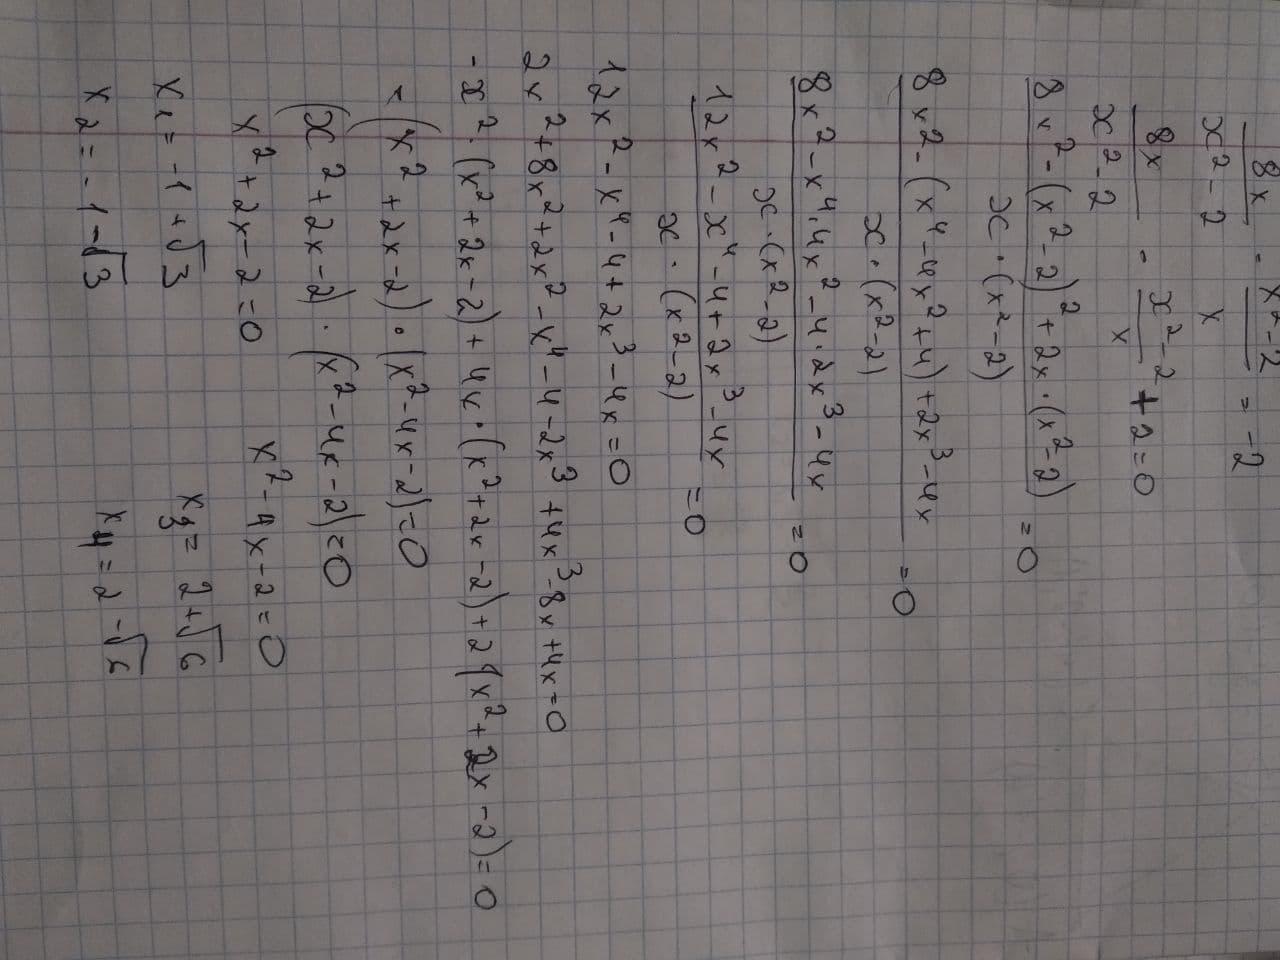 8x/(x²-2) - (x²-2)/x = -2
8x/(x²-2) - (x²-2)/x + 2=0
(8x²-(x²-2)²+2x·(x²-2))/(x·(x²-2)) =0
(8x²-(x⁴-4x²+4)+2x³-4x)/(x·(x²-2)) =0
(8x²-x⁴·4x²-4·2x³-4x)/(x·(x²-2)) =0
(12x²-x⁴-4+2x³-4x)/(x·(x²-2)) =0
12x²-x⁴-4+2x³-4x=0
2x²+8x²+2x²-x⁴-4-2x³+4x³-8x+4x=0
-x²·(x²+2x-2)+4x·(x²+2x-2)+2(x²+2x-2)=0
-(x²+2x-2)·(x²-4x-2)=0
(x²+2x-2)·(x²-4x-2)=0
x²+2x-2=0 x²-4x-2=0
x₁=-1+√3 x₃=2+√6
x₂=-1-√3 x₄=2-√6